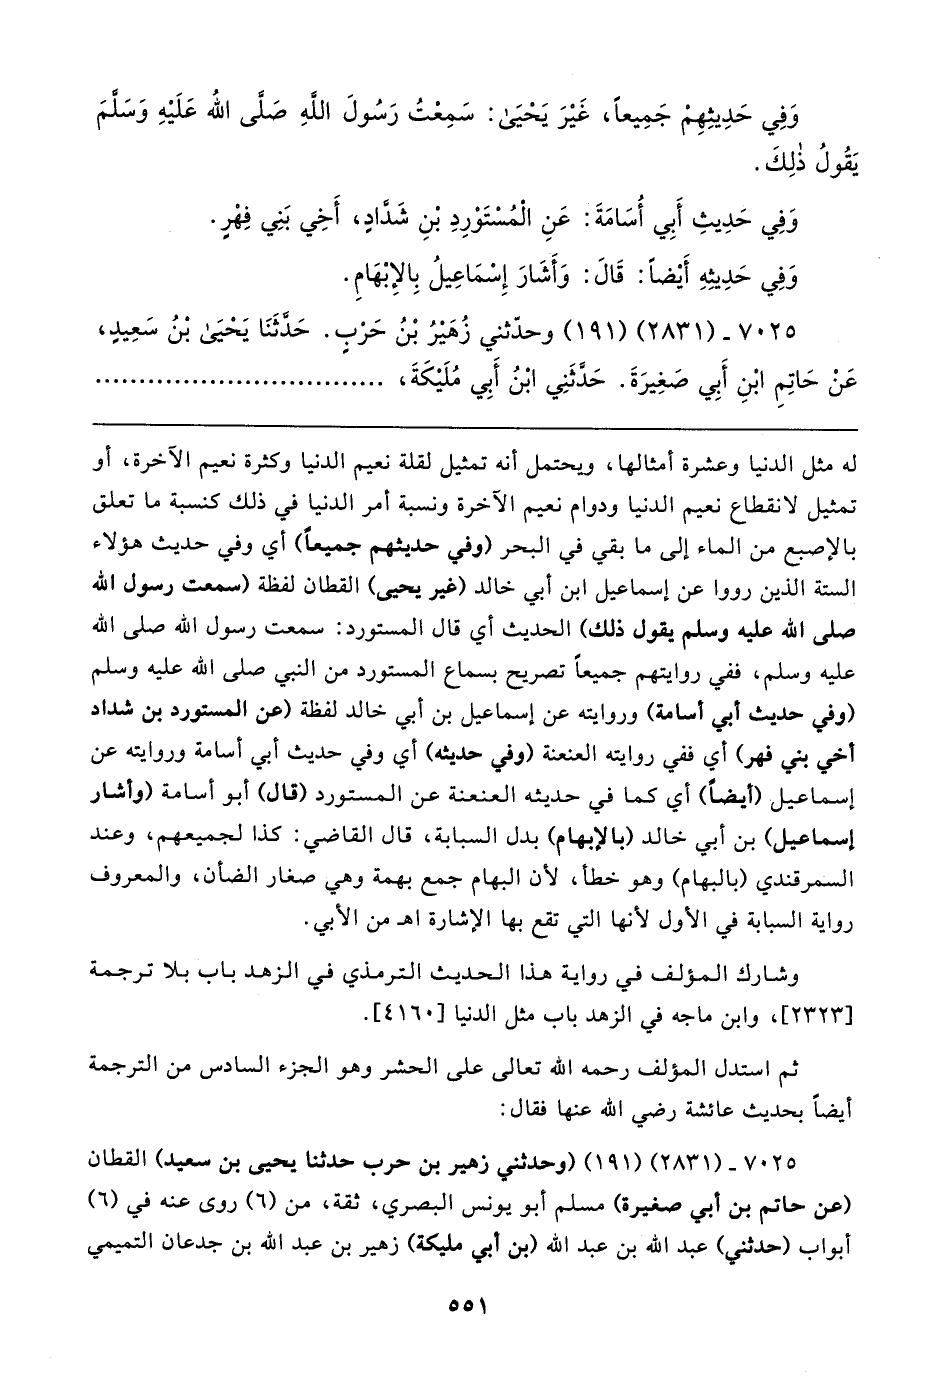 وَفِي حَدِيثِهِمْ جَمِيعاً، غَيْرَ يَحْيَىٰ: سَمِعْتُ رَسُولَ اللَّهِ صَلَّى اللهُ عَلَيْهِ وَسَلَّمَ
يَقُولُ ذٰلِكَ.
وَفِي حَدِيثِ أَبِي أُسَامَةَ: عَنِ الْمُسْتَوْرِدِ بْنِ شَدَّادٍ، أَخِي بَنِي فِهْرٍ.
وَفِي حَدِيثِهِ أَيْضاً: قَالَ: وَأَشَارَ إِسْمَاعِيلُ بِالإِبْهَامِ.
٧٠٢٥ ـ (٢٨٣١) (١٩١) وحدّثني زُهَيْرُ بْنُ حَرْبٍ. حَدَّثَنَا يَحْيَىٰ بْنُ سَعِيدٍ،
عَنْ حَاتِمِ ابْنِ أَبِي صَغِيرَةَ. حَدَّثَنِي ابْنُ أَبِي مُلَيْكَةَ، ................................
له مثل الدنيا وعشرة أمثالها، ويحتمل أنه تمثيل لقلة نعيم الدنيا وكثرة نعيم الآخرة، أو
تمثيل لانقطاع نعيم الدنيا ودوام نعيم الآخرة ونسبة أمر الدنيا في ذلك كنسبة ما تعلق
بالإصبع من الماء إلى ما بقي في البحر (وفي حديثهم جميعاً) أي وفي حديث هؤلاء
الستة الذين رووا عن إسماعيل ابن أبي خالد (غير يحيى) القطان لفظة (سمعت رسول الله
صلى الله عليه وسلم يقول ذلك) الحديث أي قال المستورد: سمعت رسول الله صلى الله
عليه وسلم، ففي روايتهم جميعاً تصريح بسماع المستورد من النبي صلى الله عليه وسلم
(وفي حديث أبي أسامة) وروايته عن إسماعيل بن أبي خالد لفظة (عن المستورد بن شداد
أخي بني فهر) أي ففي روايته العنعنة (وفي حديثه) أي وفي حديث أبي أسامة وروايته عن
إسماعيل (أيضاً) أي كما في حديثه العنعنة عن المستورد (قال) أبو أسامة (وأشار
إسماعيل) بن أبي خالد (بالإبهام) بدل السبابة، قال القاضي: كذا لجميعهم، وعند
السمرقندي (بالبهام) وهو خطأ، لأن البهام جمع بهمة وهي صغار الضأن، والمعروف
رواية السبابة في الأول لأنها التي تقع بها الإشارة اهـ من الأبي.
وشارك المؤلف في رواية هذا الحديث الترمذي في الزهد باب بلا ترجمة
[٢٣٢٣]، وابن ماجه في الزهد باب مثل الدنيا [٤١٦٠].
ثم استدل المؤلف رحمه الله تعالى على الحشر وهو الجزء السادس من الترجمة
أيضاً بحديث عائشة رضي الله عنها فقال:
٧٠٢٥ ـ (٢٨٣١) (١٩١) (وحدثني زهير بن حرب حدثنا يحيى بن سعيد) القطان
(عن حاتم بن أبي صغيرة) مسلم أبو يونس البصري، ثقة، من (٦) روى عنه في (٦)
أبواب (حدثني) عبد الله بن عبد الله (بن أبي مليكة) زهير بن عبد الله بن جدعان التميمي
٥٥١